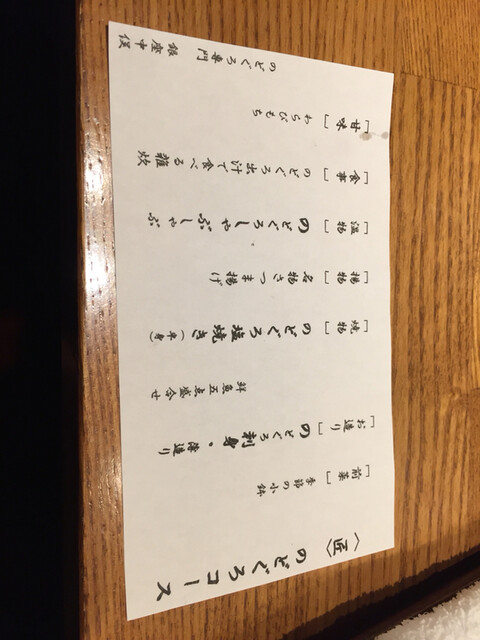 〈匠〉のどぐろコース
［前菜］
季節の小鉢
［お造り］
のどぐろ刺身・薄造り
鮮魚五点盛合せ
［焼物］
のどぐろ塩焼き（半身）
［揚物］
名物さつま揚げ
［温物］
のどぐろしゃぶしゃぶ
［食事］
のどぐろ出汁で食べる雑炊
［甘味］
わらびもち
のどぐろ専門
銀座中俣